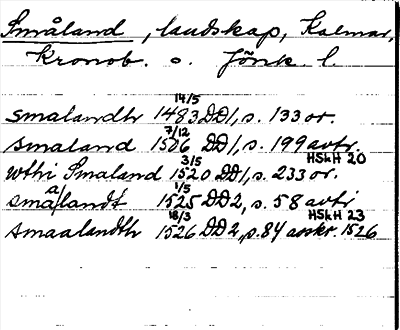 Småland, landskap, Kalmar,
Kronob. o. Jönk. l.
smalandh 14/5 1483 DD1, s. 133 or.
smaland 7/12 1506 DD1, s. 199 avtr.
wthi Smaland 3/5 1520 DD1, s. 233 or. HSkH 20
smålandt 1/5 1525 DD2, s. 58 avtr HSkH 23
smaalandh 18/3 1526 DD2, s. 84 avskr. 1526